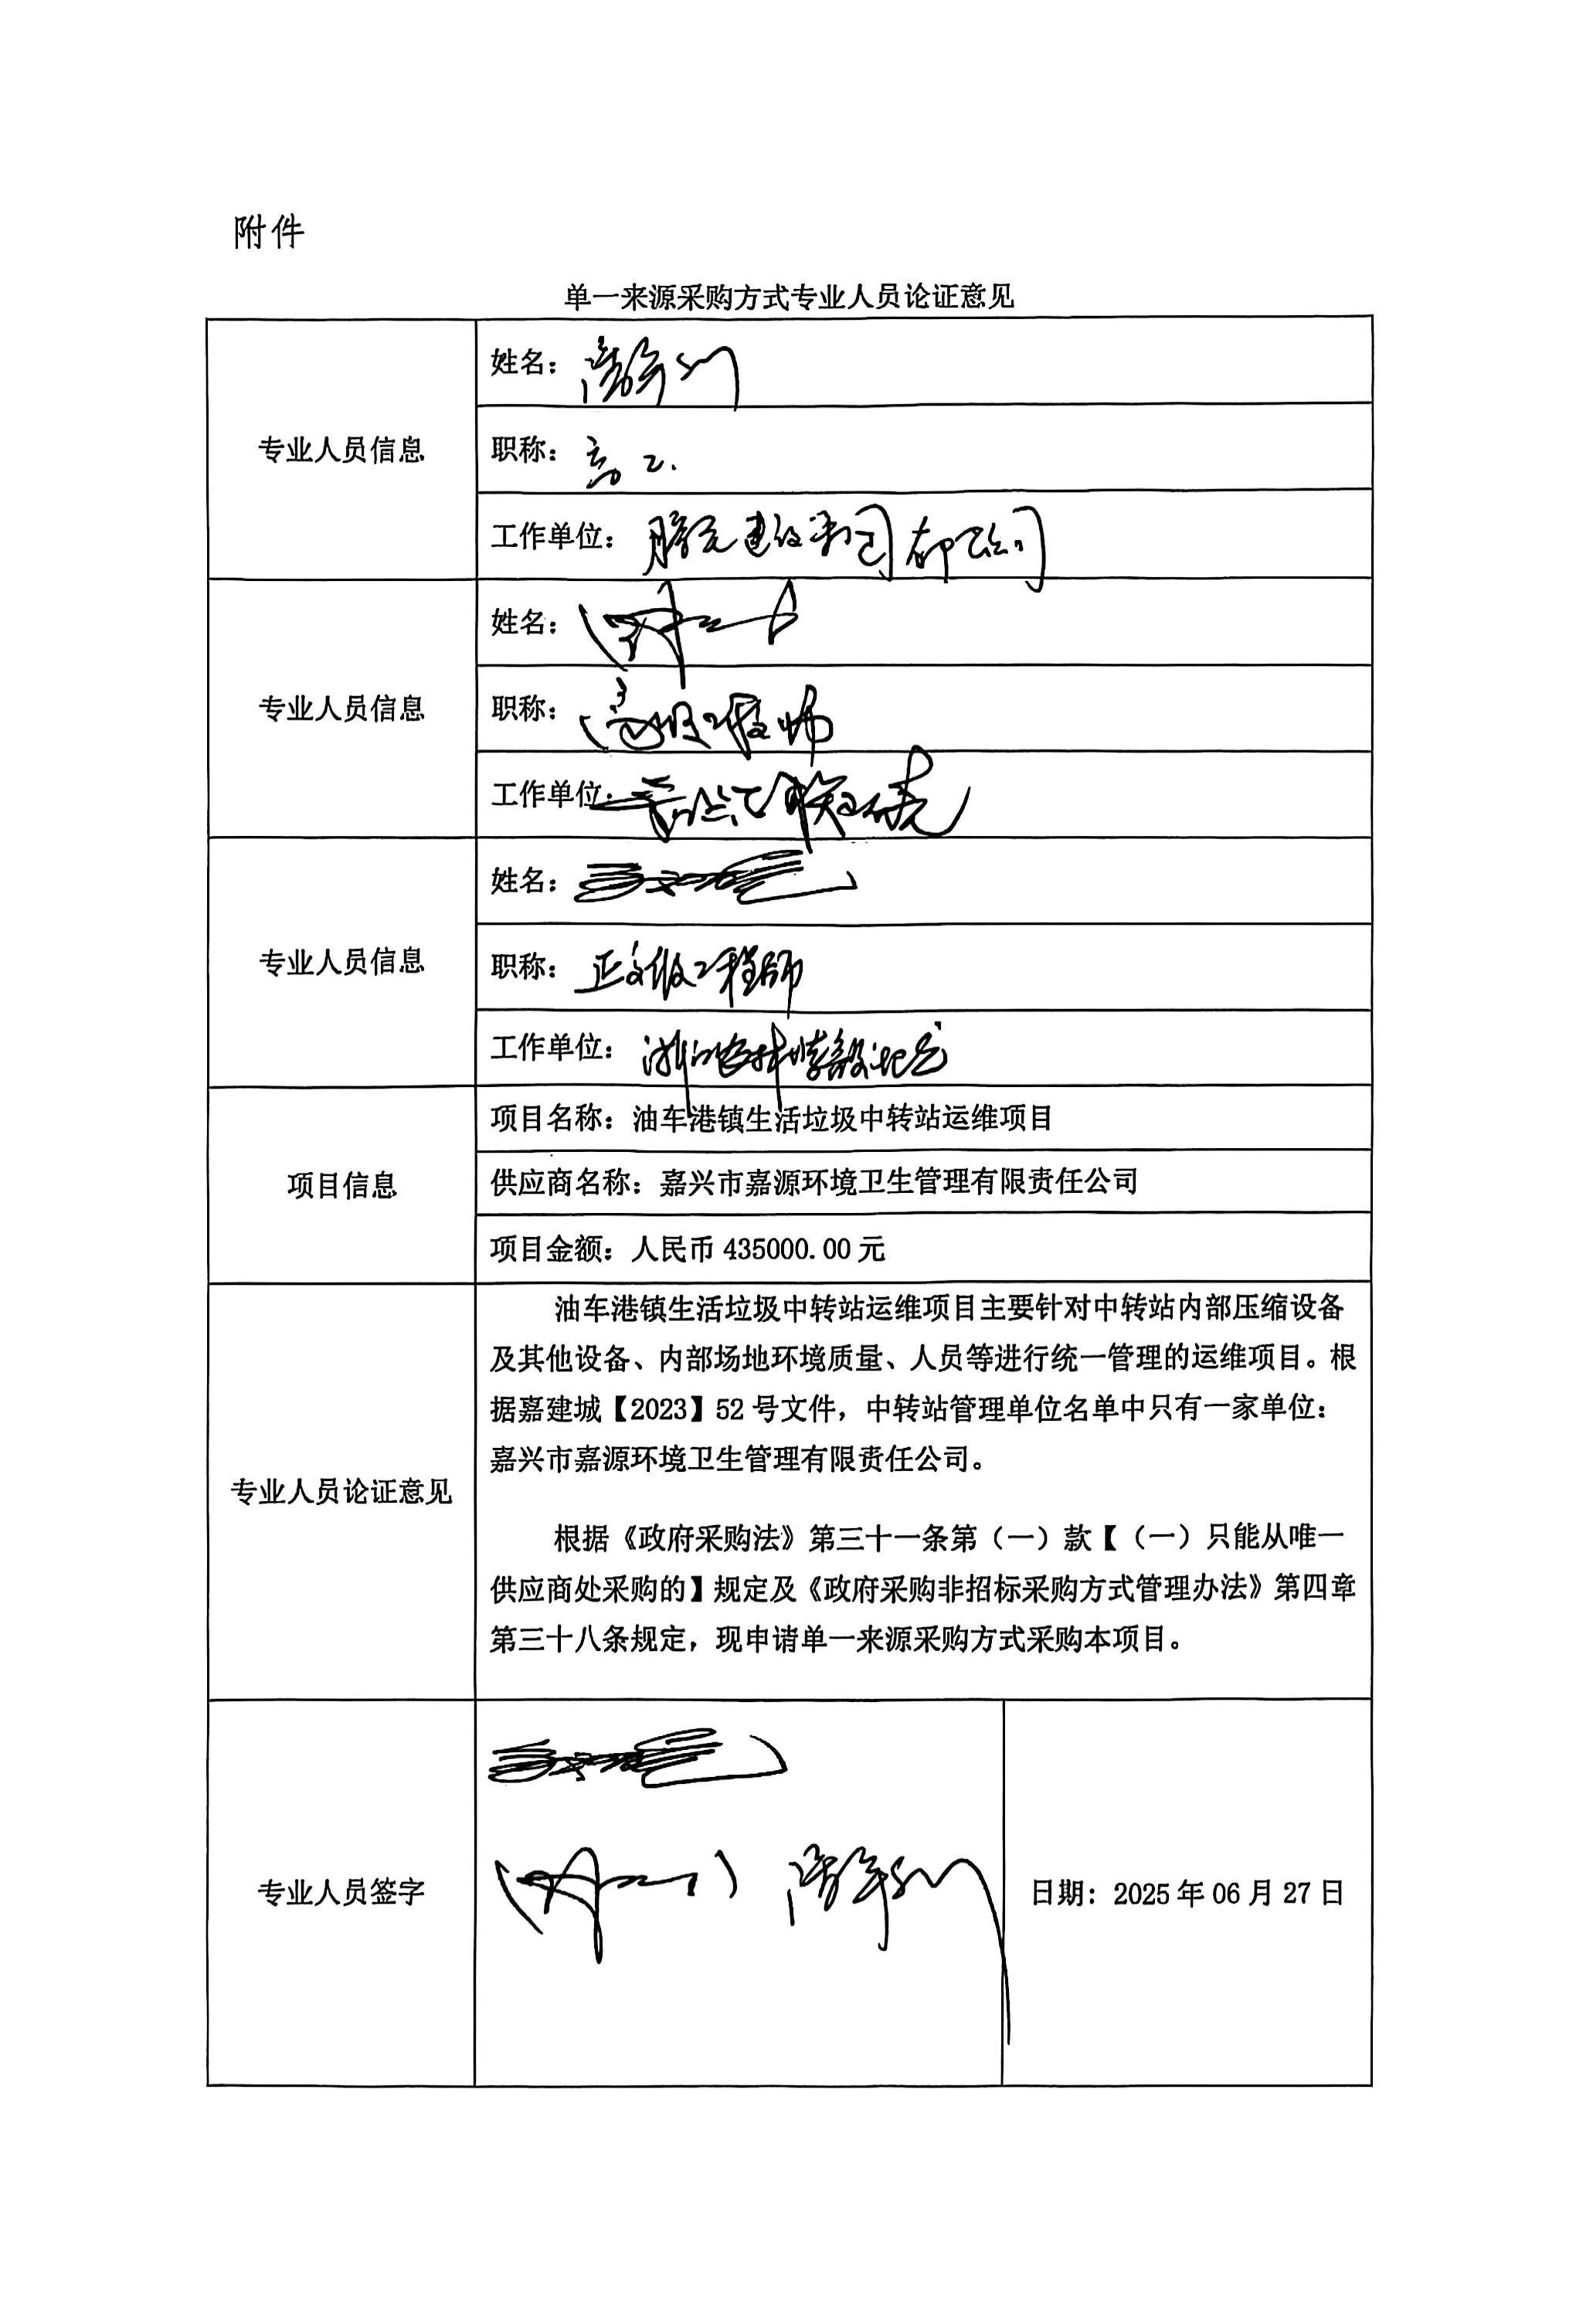 附件
单一来源采购方式专业人员论证意见
专业人员信息
姓名：
职称：高工.
工作单位：腾元建设集团有限公司
专业人员信息
姓名：
职称：高级工程师
工作单位：
专业人员信息
姓名：
职称：正高级工程师
工作单位：
项目信息
项目名称：油车港镇生活垃圾中转站运维项目
供应商名称：嘉兴市嘉源环境卫生管理有限责任公司
项目金额：人民币 435000.00 元
专业人员论证意见
油车港镇生活垃圾中转站运维项目主要针对中转站内部压缩设备
及其他设备、内部场地环境质量、人员等进行统一管理的运维项目。根
据嘉建城【2023】52 号文件，中转站管理单位名单中只有一家单位：
嘉兴市嘉源环境卫生管理有限责任公司。
根据《政府采购法》第三十一条第（一）款【（一）只能从唯一
供应商处采购的】规定及《政府采购非招标采购方式管理办法》第四章
第三十八条规定，现申请单一来源采购方式采购本项目。
专业人员签字
日期：2025 年 06 月 27 日